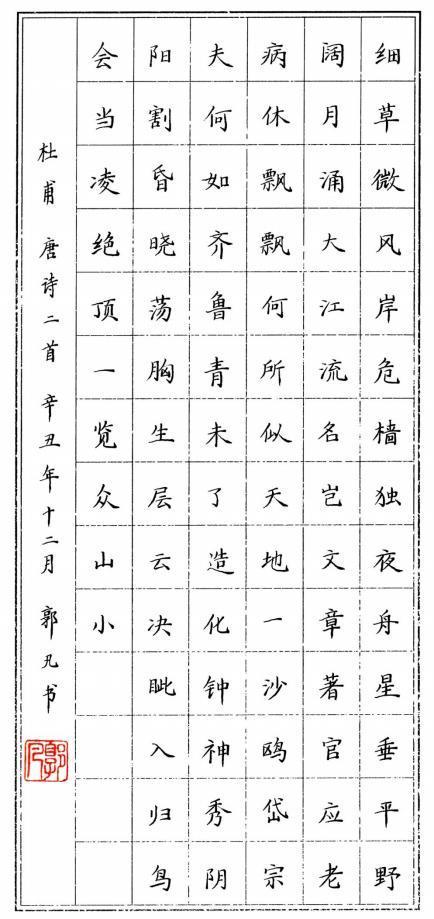 细草微风岸危樯独夜舟星垂平野
阔月涌大江流名岂文章著官应老
病休飘飘何所似天地一沙鸥岱宗
夫何如齐鲁青未了造化钟神秀阴
阳割昏晓荡胸生层云决眦入归鸟
会当凌绝顶一览众山小
杜甫 唐诗二首 辛丑年十二月 郭凡书
郭凡